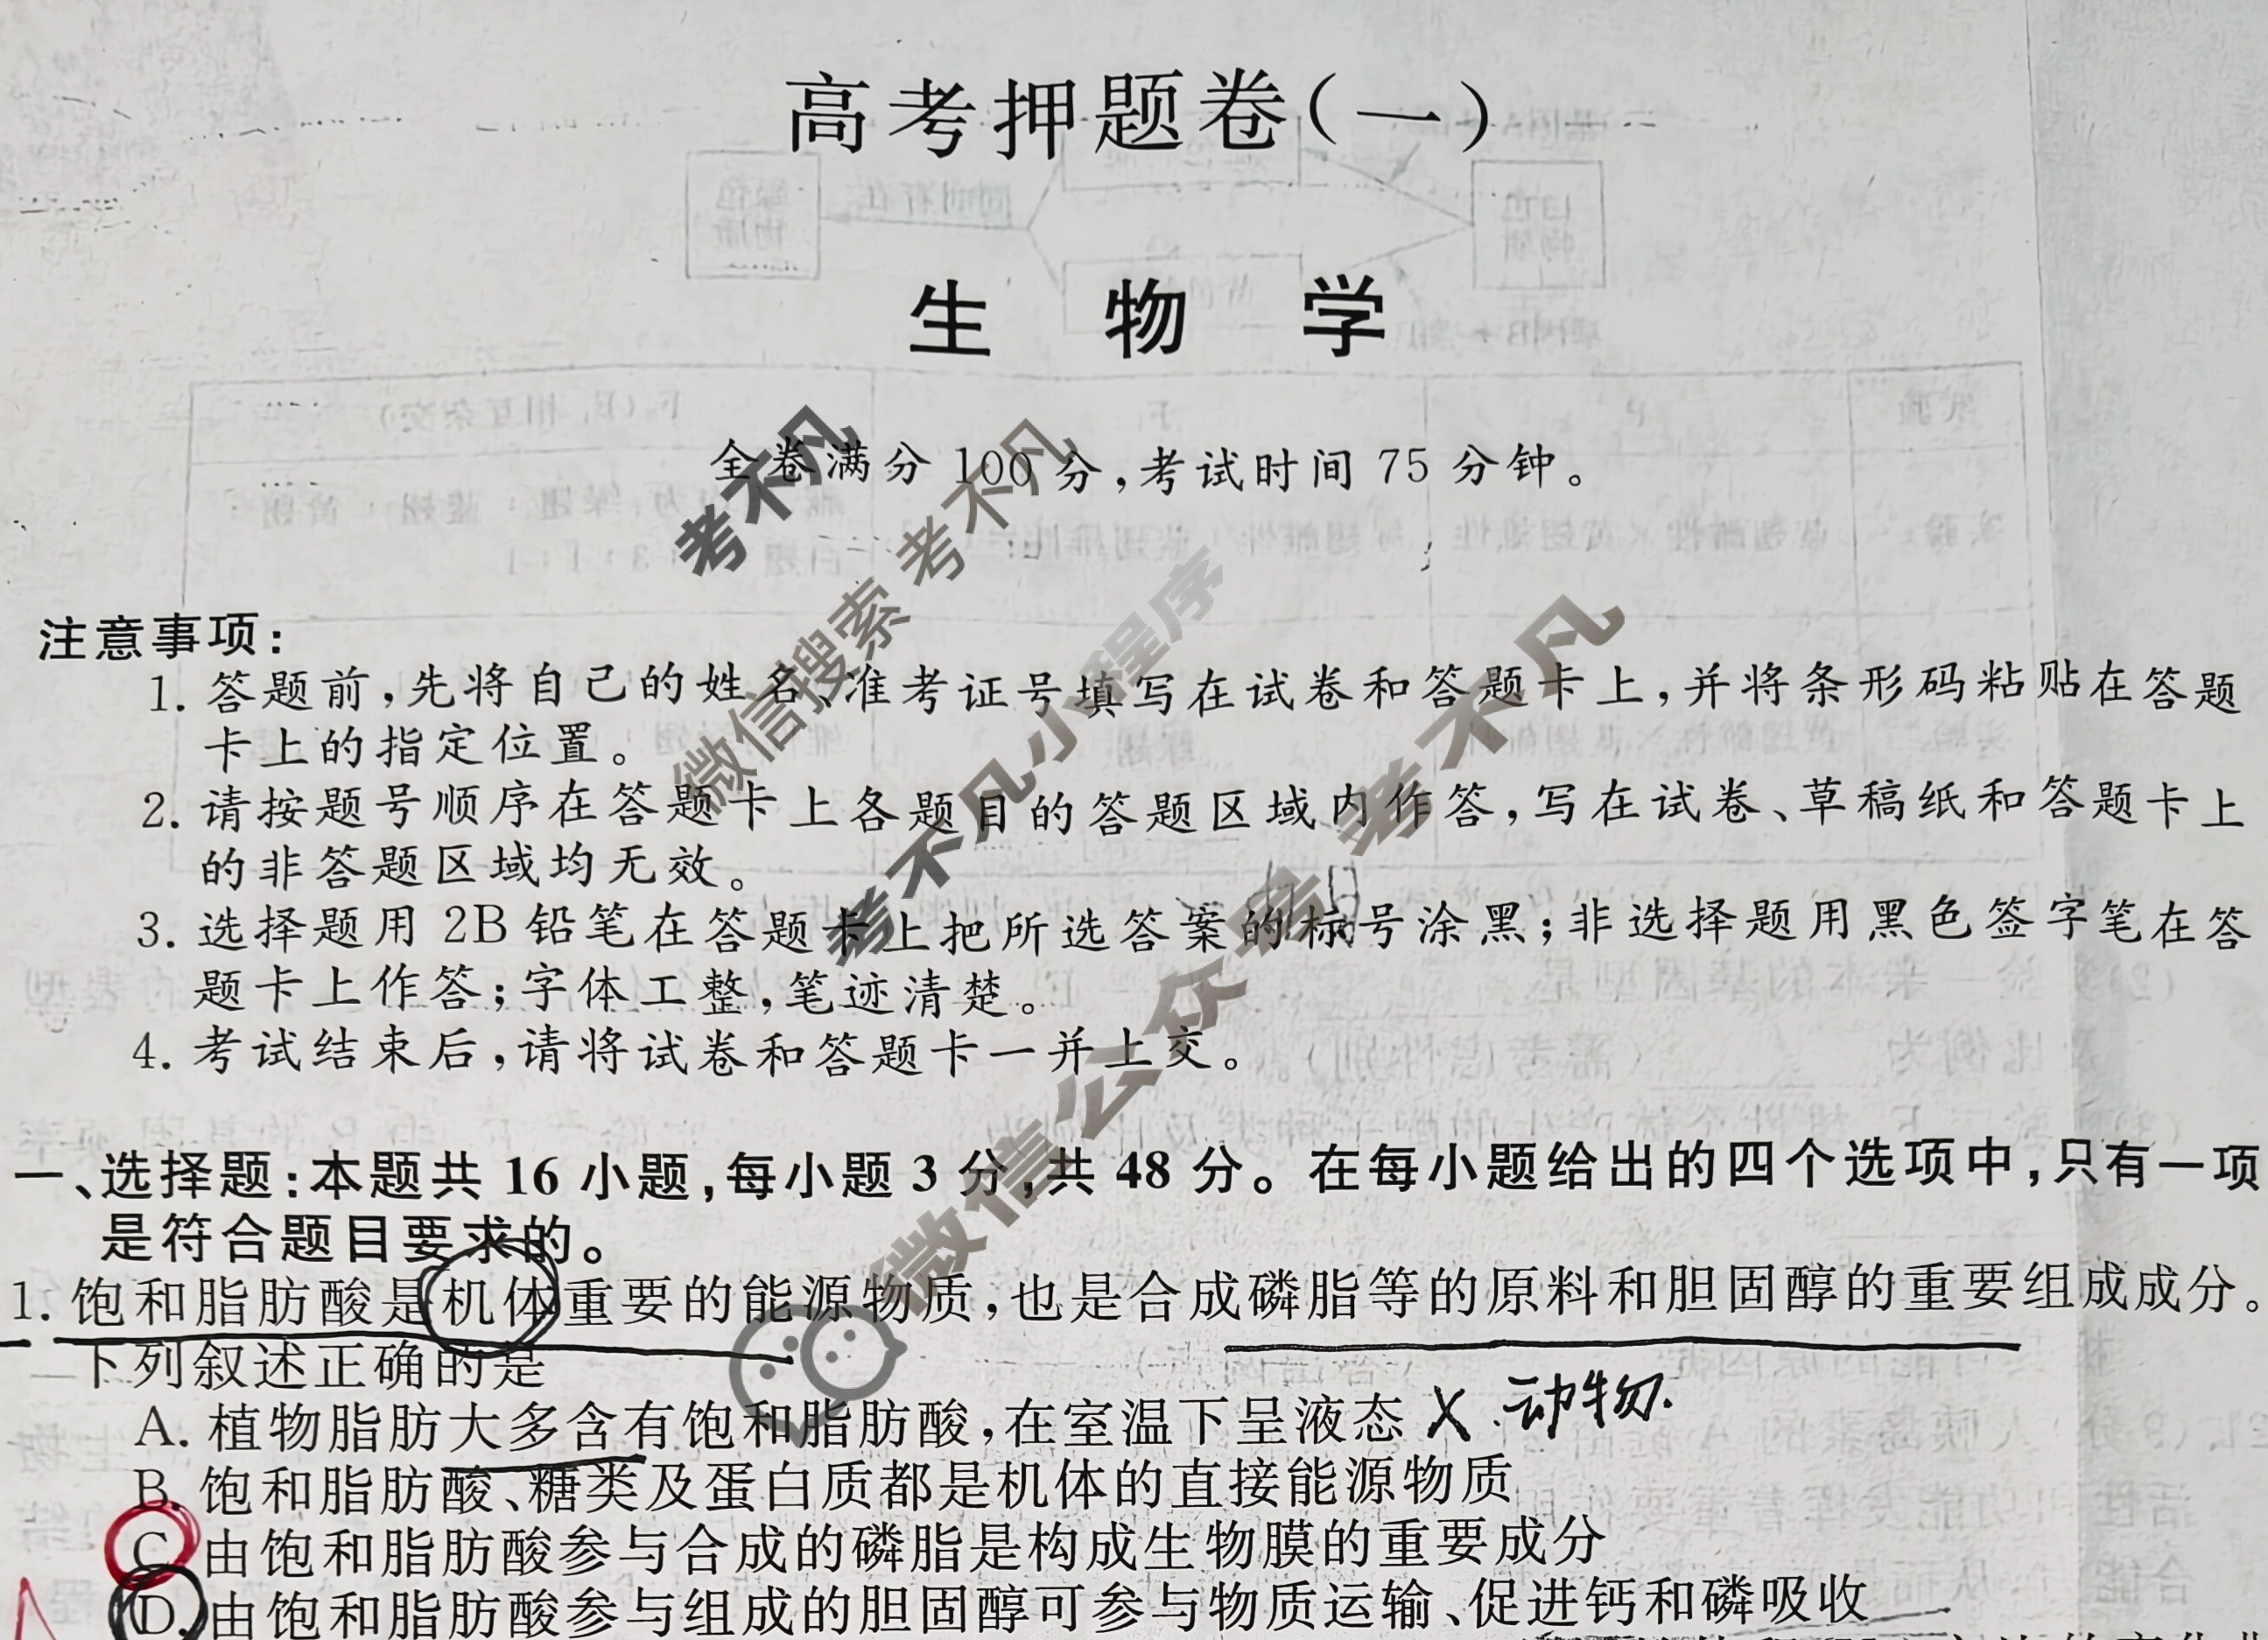 高考押题卷(一)
生 物 学
全卷满分 100 分,考试时间 75 分钟。
考不凡
微信搜索 考不凡
考不凡小程序
微信公众号 考不凡
注意事项:
1. 答题前,先将自己的姓名、准考证号填写在试卷和答题卡上,并将条形码粘贴在答题
卡上的指定位置。
2. 请按题号顺序在答题卡上各题目的答题区域内作答,写在试卷、草稿纸和答题卡上
的非答题区域均无效。
3. 选择题用 2B 铅笔在答题卡上把所选答案的标号涂黑;非选择题用黑色签字笔在答
题卡上作答;字体工整,笔迹清楚。
4. 考试结束后,请将试卷和答题卡一并上交。
一、选择题:本题共 16 小题,每小题 3 分,共 48 分。在每小题给出的四个选项中,只有一项
是符合题目要求的。
1. 饱和脂肪酸是机体重要的能源物质,也是合成磷脂等的原料和胆固醇的重要组成成分。
下列叙述正确的是
A. 植物脂肪大多含有饱和脂肪酸,在室温下呈液态 X 动物.
B. 饱和脂肪酸、糖类及蛋白质都是机体的直接能源物质
C. 由饱和脂肪酸参与合成的磷脂是构成生物膜的重要成分
D. 由饱和脂肪酸参与组成的胆固醇可参与物质运输、促进钙和磷吸收